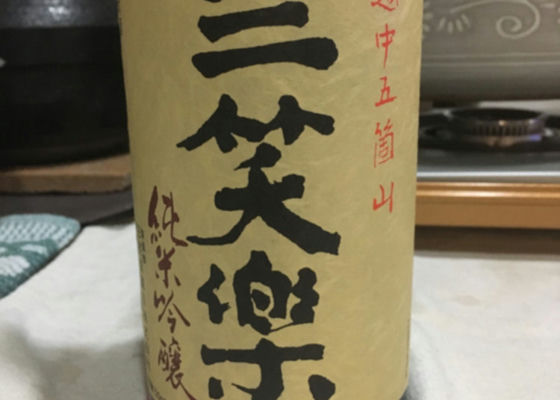 越中五箇山
三笑樂
純米吟醸